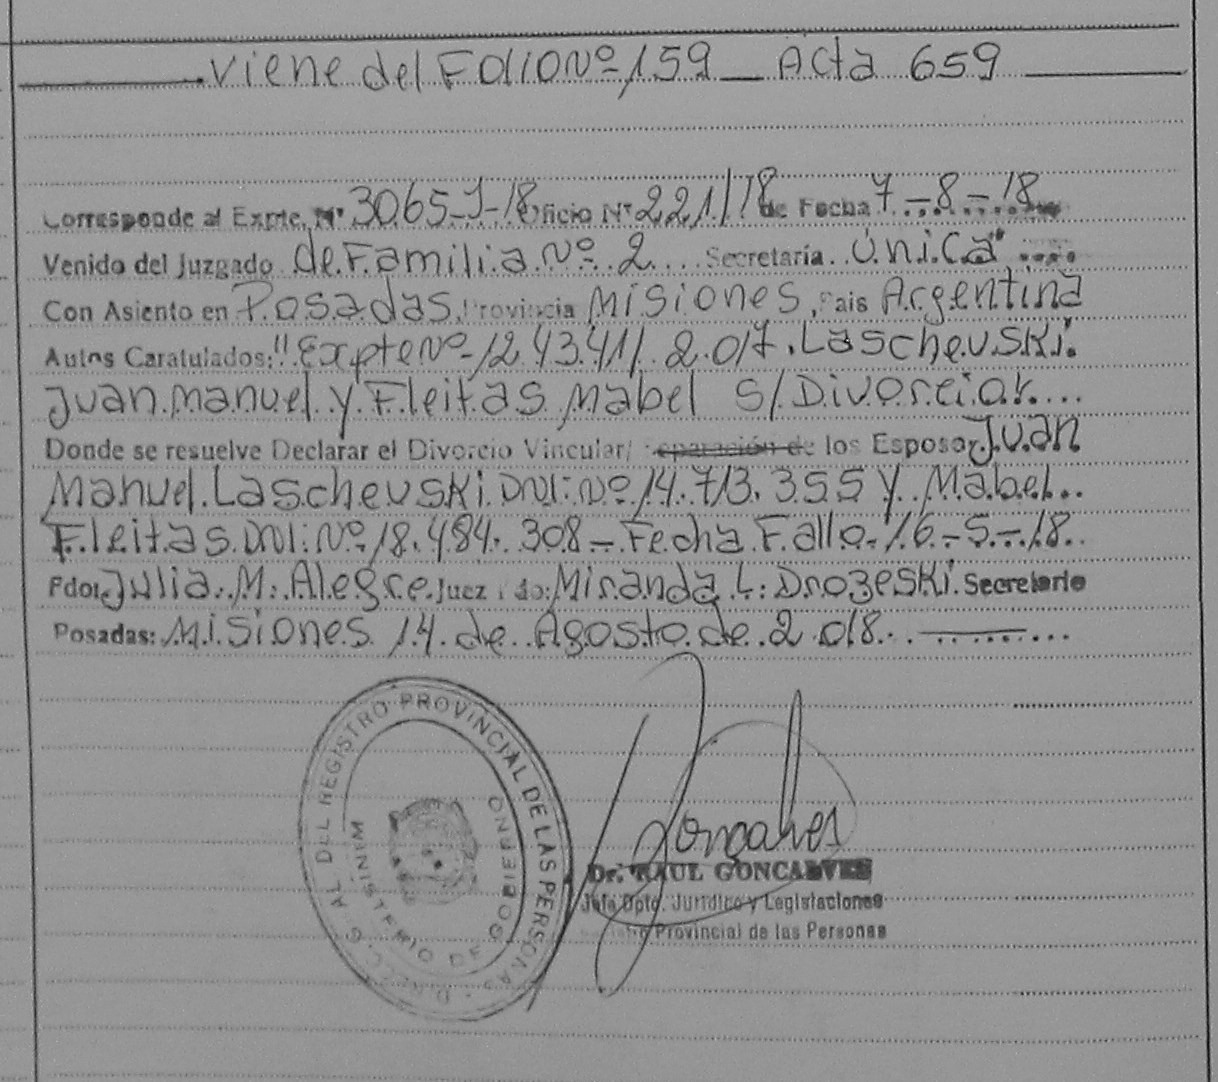 Viene del Folio Nº 159 Acta 659
Corresponde al Expte. Nº 3065-J-18 Oficio Nº 221/18 de Fecha 7-8-18
Venido del Juzgado de Familia Nº 2 Secretaría Única
Con Asiento en Posadas, Provincia Misiones, Pais Argentina
Autos Caratulados: "Expte Nº 124341/2017. Lascheuski
Juan Manuel y Fleitas Mabel S/Divorcio
Donde se resuelve Declarar el Divorcio Vincular/ separación de los Esposos Juan
Manuel Lascheuski DNI: Nº 14.713.355 y Mabel
Fleitas DNI: Nº 18.484.308 - Fecha Fallo 16-5-18
Fdo: Julia M. Alegre Juez Fdo: Miranda L. Drozeski Secretario
Posadas: Misiones 14 de Agosto de 2018
DEL REGISTRO PROVINCIAL DE LAS PERSONAS
MINISTERIO DE GOBIERNO
Goncalves
Dr. RAUL GONCALVES
Jefe Dpto. Jurídico y Legislaciones
Provincial de las Personas